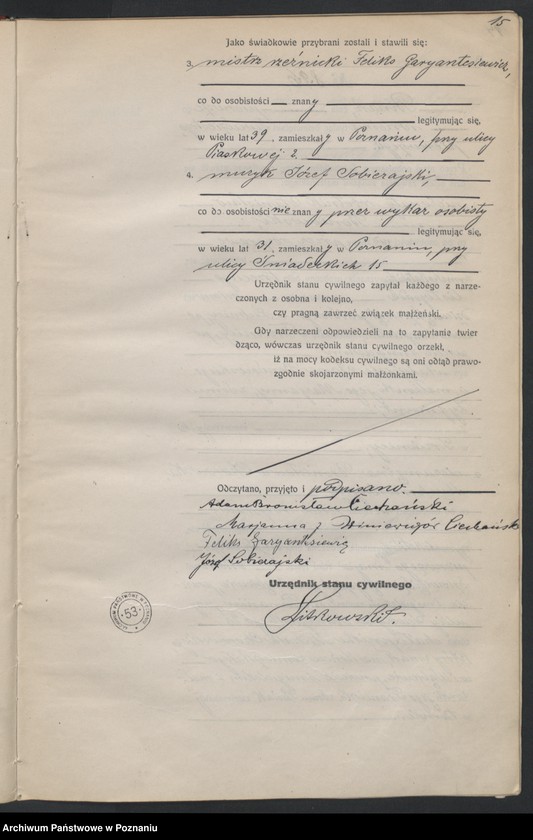 15
Jako świadkowie przybrani zostali i stawili się:
3. mistrz rzeźnicki Feliks Garyantesiewicz,
co do osobistości znany
legitymując się,
w wieku lat 39, zamieszkały w Poznaniu, przy ulicy
Piaskowej 2.
4. muzyk Józef Sobierajski,
co do osobistości nie znany przez wykaz osobisty
legitymując się,
w wieku lat 31, zamieszkały w Poznaniu, przy
ulicy Śniadeckich 15
Urzędnik stanu cywilnego zapytał każdego z narze-
czonych z osobna i kolejno,
czy pragną zawrzeć związek małżeński.
Gdy narzeczeni odpowiedzieli na to zapytanie twier
dząco, wówczas urzędnik stanu cywilnego orzekł,
iż na mocy kodeksu cywilnego są oni odtąd prawo-
zgodnie skojarzonymi małżonkami.
Odczytano, przyjęto i podpisano.
Adam Bronisław Ciechański
Marjanna z Ciechańsk
Feliks Garyantesiewicz
Józef Sobierajski
Urzędnik stanu cywilnego
53
Archiwum Państwowe w Poznaniu